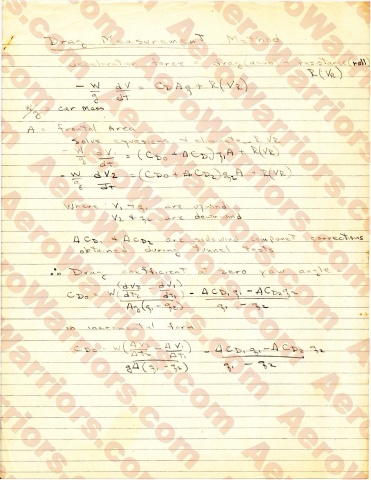 Drag Measurement Method
decelerator force = drag (aero) + resistance (roll)
R(VR)
- W/g dV/dt = CD Aq + R(VR)
W/g car mass
A = Frontal Area
Solve equations & eliminate R VR
- W/g dV1/dt = (CDo + ΔCD1) q1 A + R(VR)
- W/g dV2/dt = (CDo + ΔCD2) q2 A + R(VR)
Where V1 & q1 are upwind
V2 & q2 are downwind
ΔCD1 & ΔCD2 are sidewind component corrections
obtained during tunnel tests
∴ Drag coefficient at zero yaw angle
CDo = W(dV2/dt2 - dV1/dt1) / Ag(q1 - q2) - ΔCD1 q1 - ΔCD2 q2 / q1 - q2
in incremental form
CDo = W(ΔV2/ΔT2 - ΔV1/ΔT1) / gA(q1 - q2) - ΔCD1 q1 - ΔCD2 q2 / q1 - q2
AeroWarriors.com